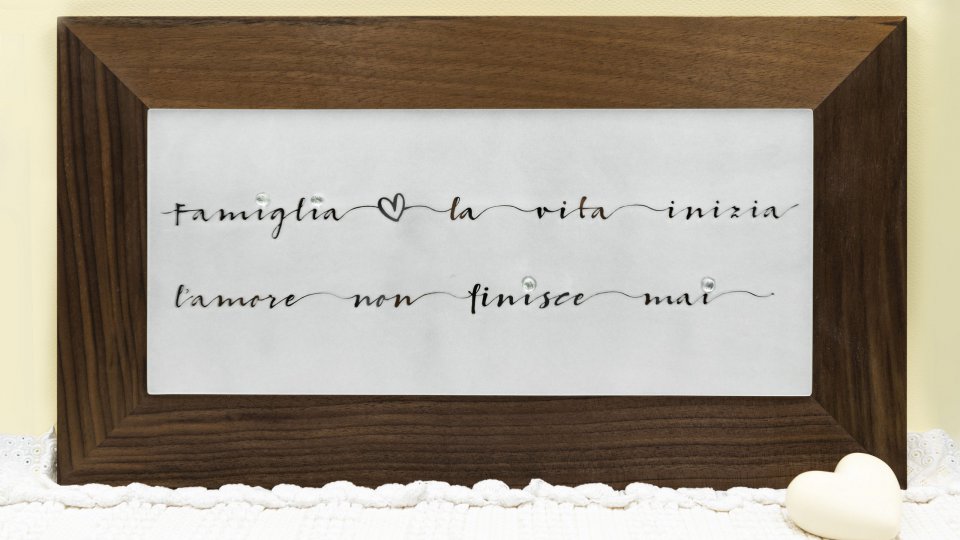 Famiglia ♡ la vita inizia
l'amore non finisce mai